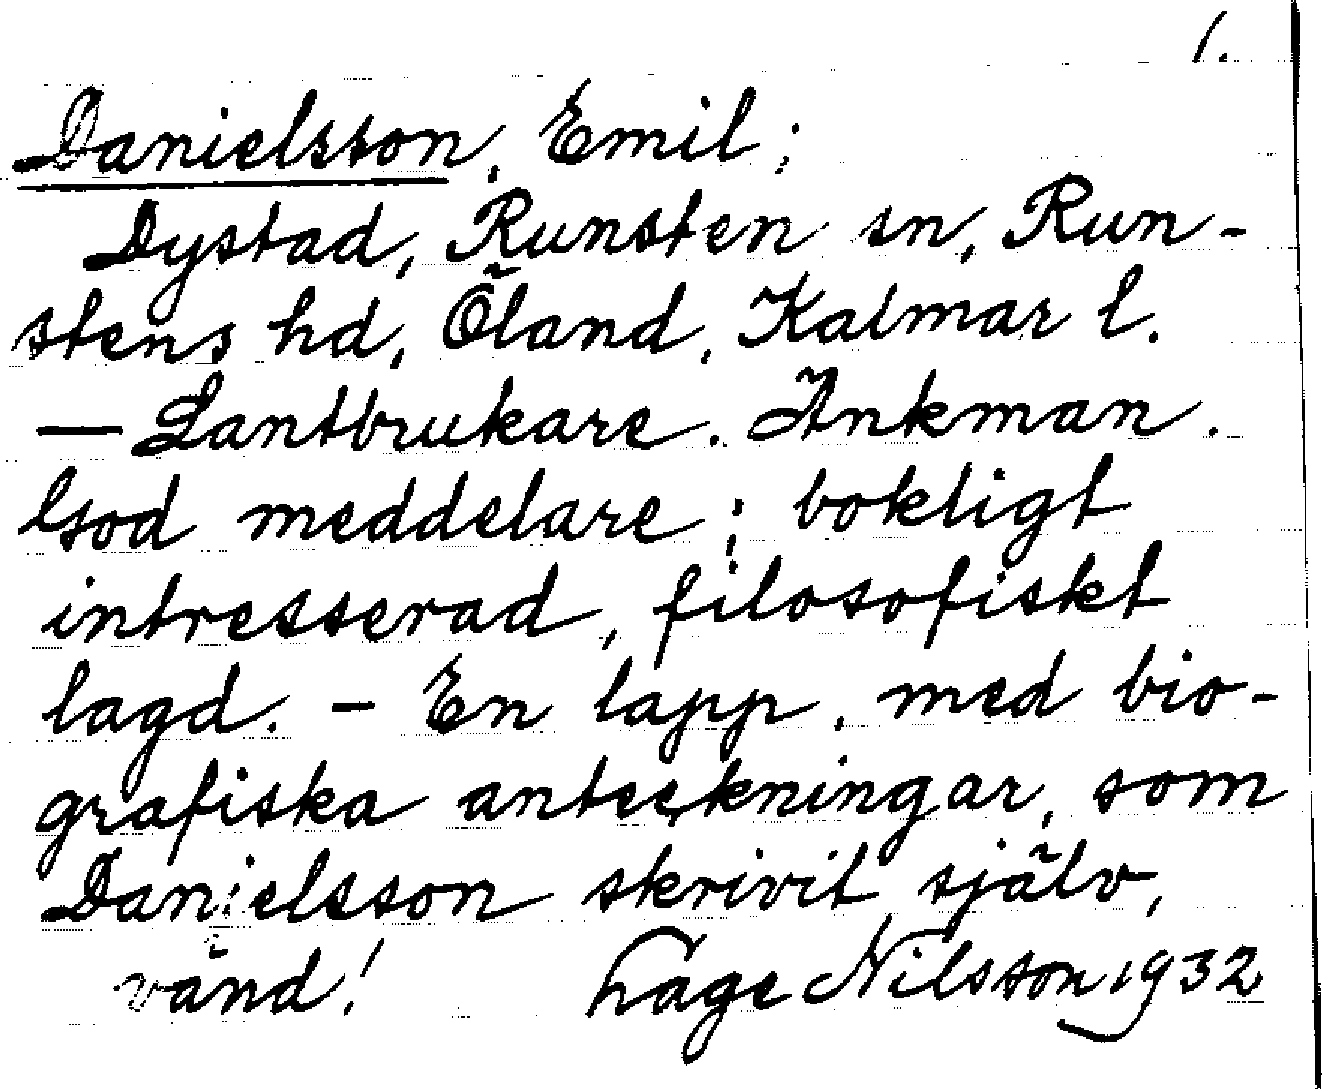 1.
Danielsson, Emil;
Dystad, Runsten sn, Run-
stens hd, Öland, Kalmar l.
— Lantbrukare. Änkman.
God meddelare; bokligt
intresserad, filosofiskt
lagd. – En lapp, med bio-
grafiska anteckningar, som
Danielsson skrivit själv,
vänd! Låge Nilsson 1932